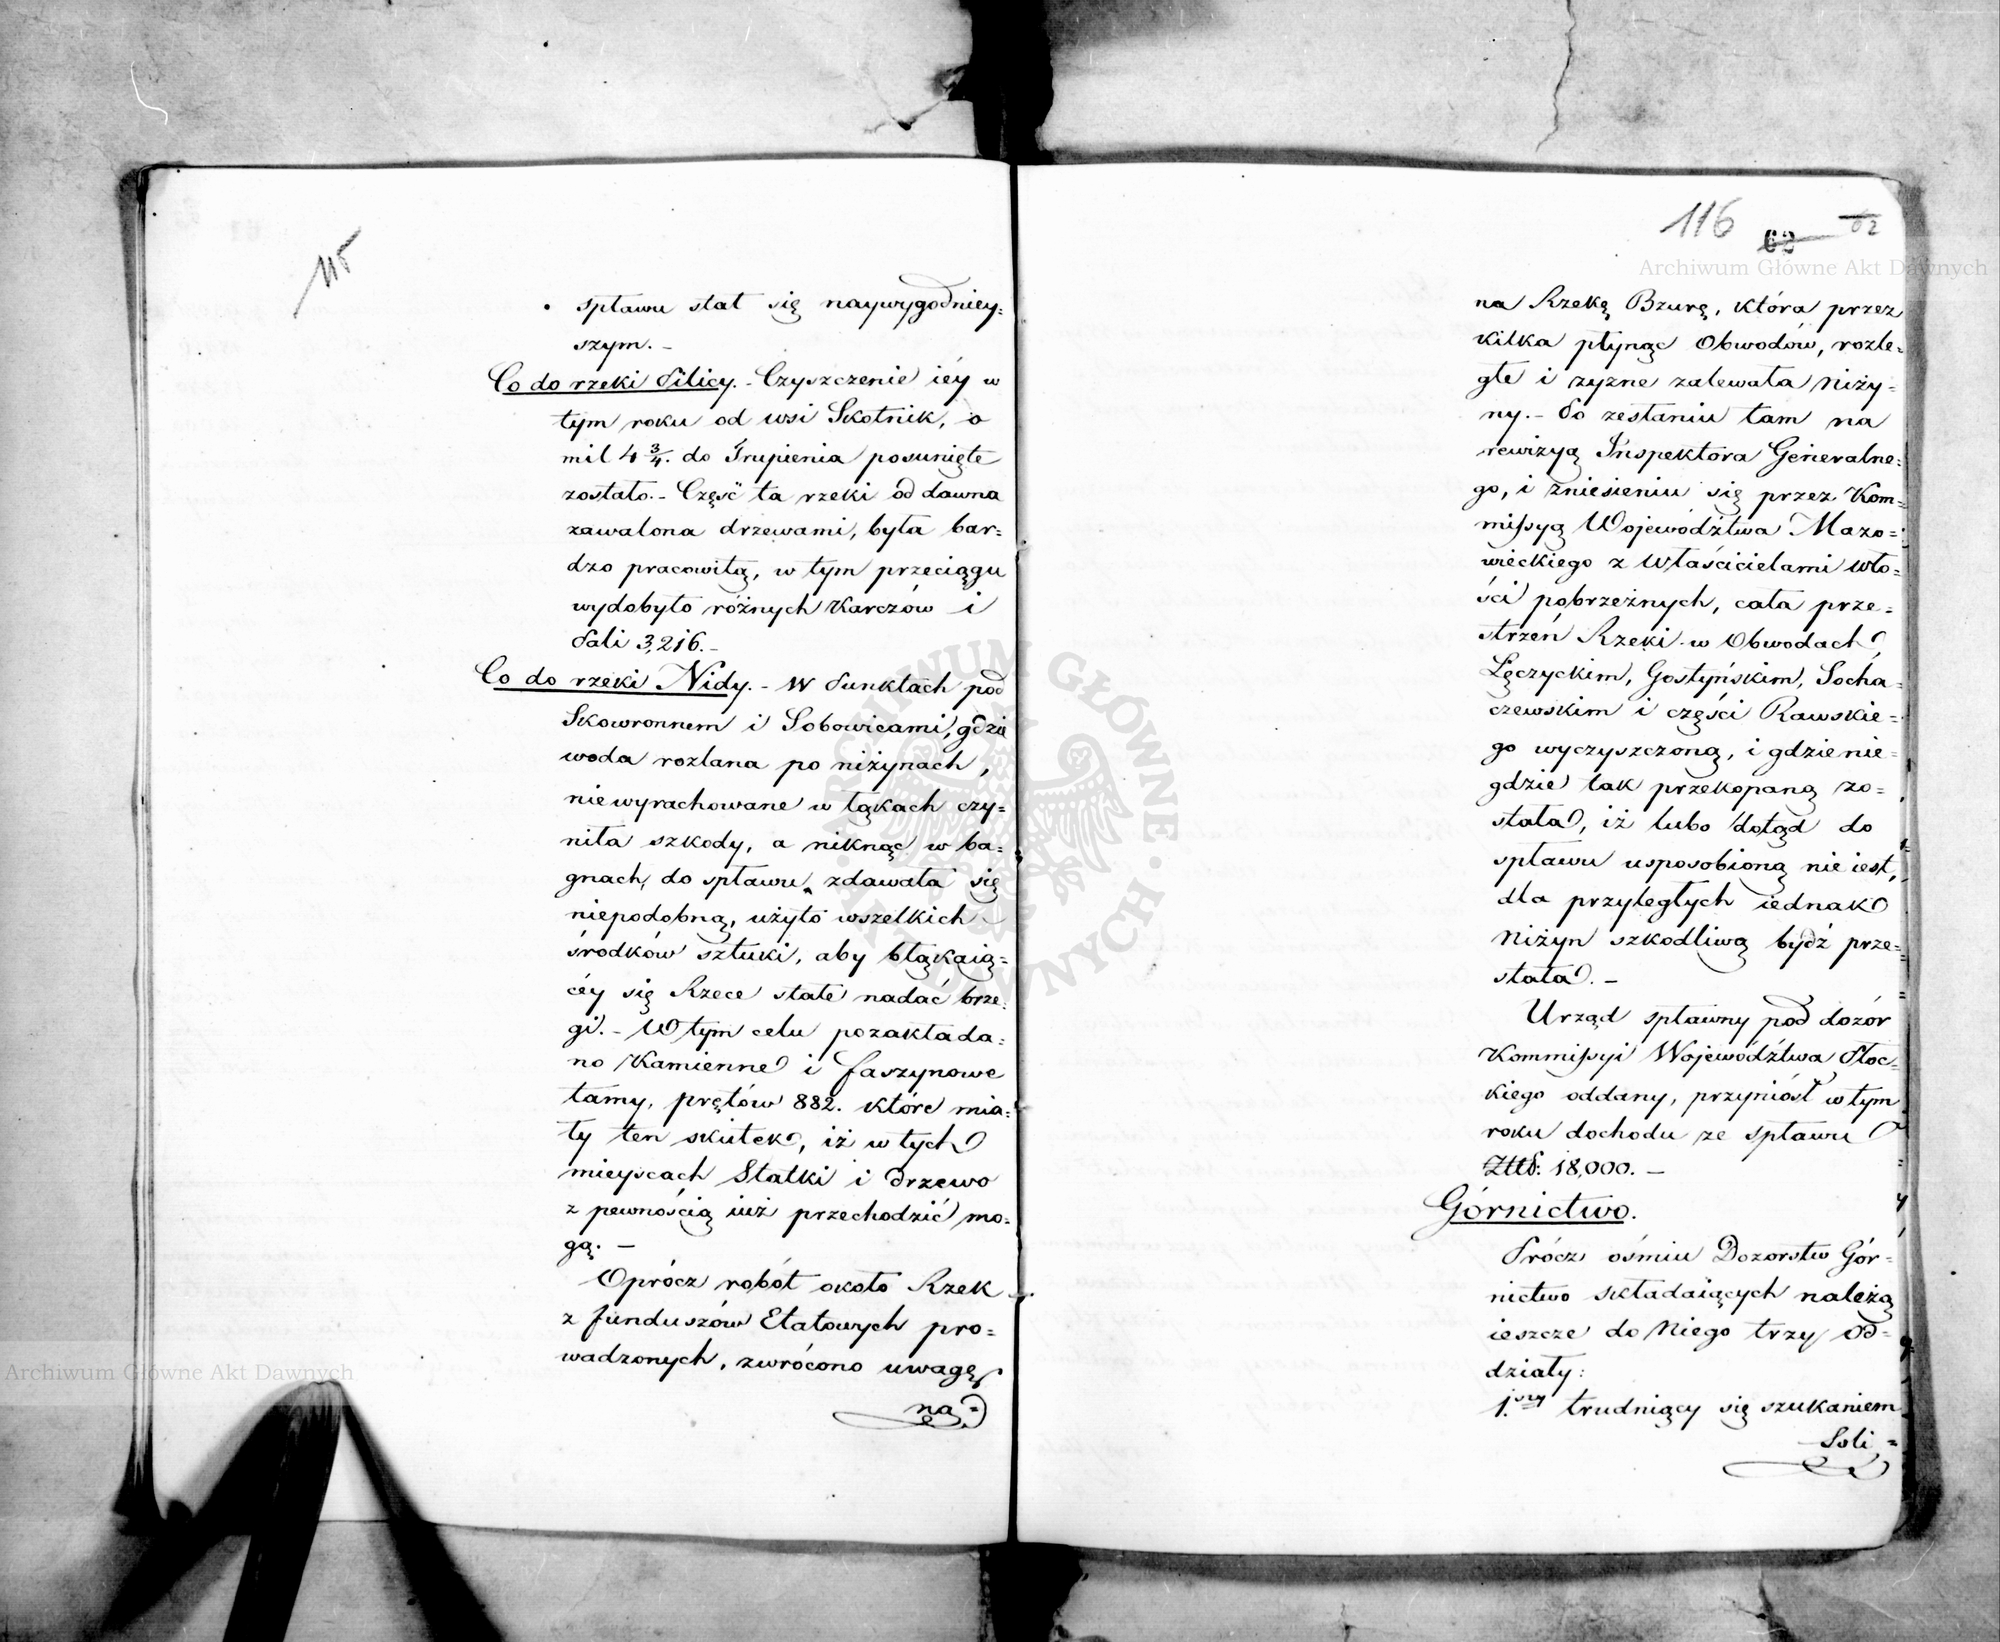 115
spławu stał się naywygodniey=
szym. –
Co do rzeki Pilicy. – Czyszczenie iéy w
tym roku od wsi Skotnik, o
mil 4 3/4. do Trupienia posunięte
zostało. – Część ta rzeki od dawna
zawalona drzewami, była bar=
dzo pracowitą, w tym przeciągu
wydobyto różnych Karczów i
Pali 3,216. –
Co do rzeki Nidy. – W Punktach pod
Skowronnem i Sobowicami, gdzie
woda rozlana po niżynach,
niewyrachowane w łąkach czy=
niła szkody, a niknąc w ba=
gnach, do spławu zdawała się
niepodobną, użyto wszelkich
środków sztuki, aby błąkaią=
céy się Rzece stałe nadać brze=
gi. – W tym celu pozakłada=
no Kamienne i faszynowe
tamy, prętów 882. które mia=
ły ten skutek, iż w tych
mieyscach Statki i drzewo
z pewnością iuż przechodzić mo=
gą. –
Oprócz robót około Rzek
z funduszów Etatowych pro=
wadzonych, zwrócono uwagę
na=
116 62 62
na Rzekę Bzurę, która przez
kilka płynąc Obwodów, rozle=
głe i żyzne zalewała niży=
ny. – Po zesłaniu tam na
rewizyą Inspektora Generalne=
go, i zniesieniu się przez Kom=
missyą Województwa Mazo=
wieckiego z właścicielami wło=
ści pobrzeżnych, cała prze=
strzeń Rzeki w Obwodach
Łęczyckim, Gostyńskim, Socha=
czewskim i części Rawskie=
go wyczyszczoną, i gdzienie=
gdzie tak przekopaną zo=
stała, iż lubo dotąd do
spławu usposobioną nie iest,
dla przyległych iednak
Niżyn szkodliwą bydź prze=
stała. –
Urząd spławny pod dozór
Kommissyi Województwa Płoc=
kiego oddany, przyniósł w tym
roku dochodu ze spławu
Złlp. 18,000. –
Górnictwo.
Prócz ośmiu Dozorstw Gór=
nictwo składaiących należą
ieszcze do Niego trzy Od=
działy:
1.szy trudniący się szukaniem
Soli=
Archiwum Główne Akt Dawnych
Archiwum Główne Akt Dawnych
ARCHIWUM GŁÓWNE AKT DAWNYCH